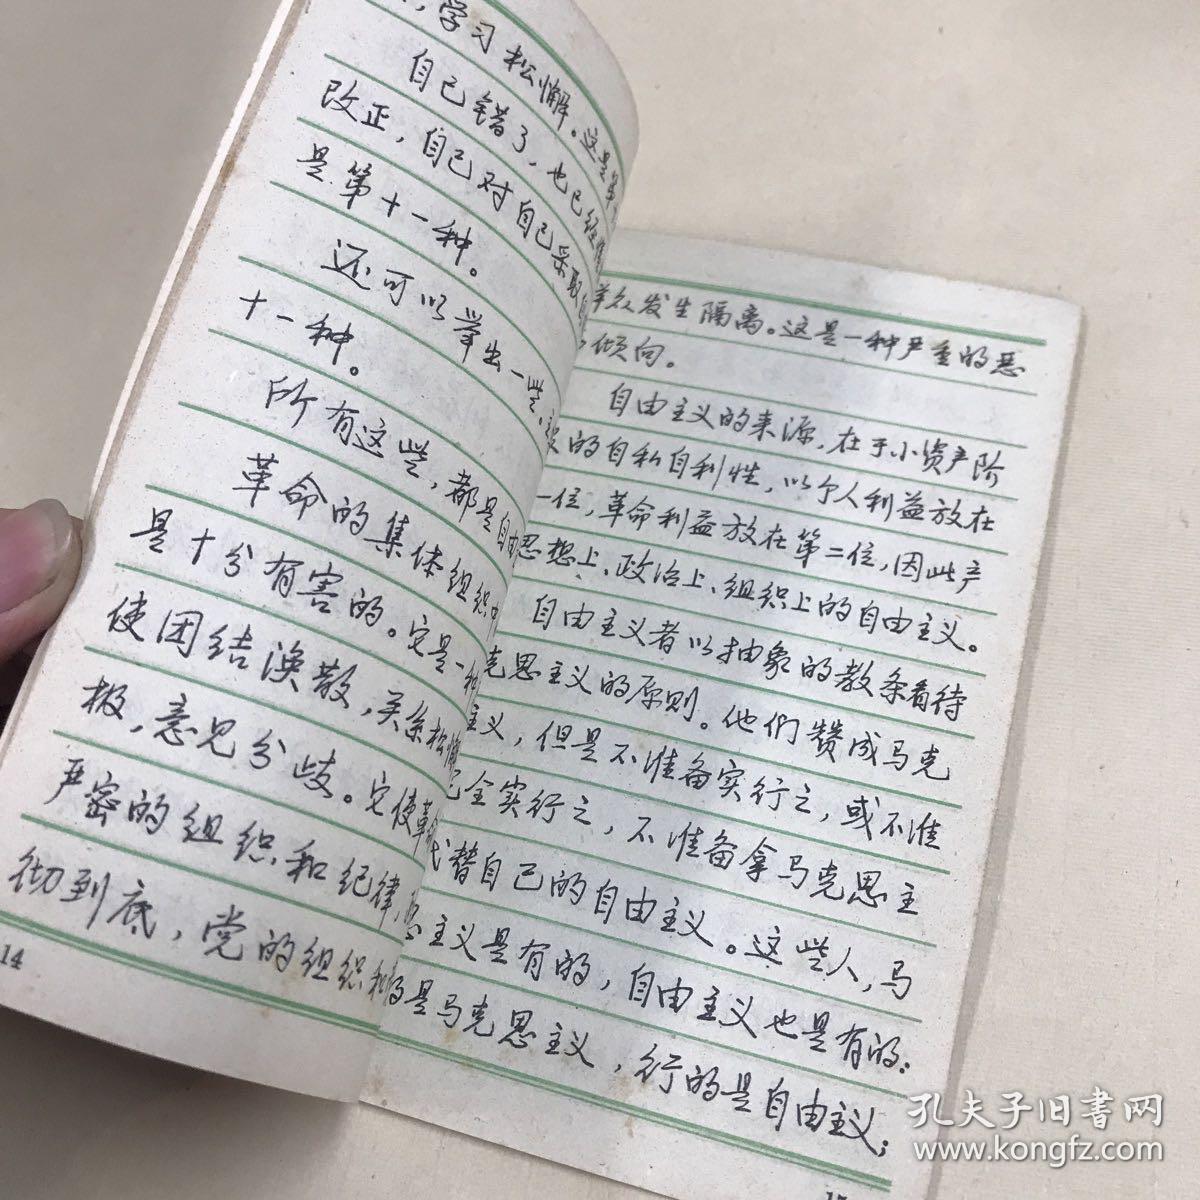 ，学习松懈。这是第
自己错了，也已经懂
改正，自己对自己采取
是第十一种。
还可以举出一些。
十一种。
所有这些，都是自由
革命的集体组织中
是十分有害的。它是一种
使团结涣散，关系松懈
极，意见分歧。它使革
严密的组织和纪律，
彻到底，党的组织和
14
群众发生隔离。这是一种严重的恶
倾向。
自由主义的来源，在于小资产阶
级的自私自利性，以个人利益放在
一位，革命利益放在第二位，因此产
思想上、政治上、组织上的自由主义。
自由主义者以抽象的教条看待
克思主义的原则。他们赞成马克
主义，但是不准备实行之，或不准
完全实行之，不准备拿马克思主
代替自己的自由主义。这些人，马
思主义是有的，自由主义也是有的：
的是马克思主义，行的是自由主义；
15
孔夫子旧书网
www.kongfz.com